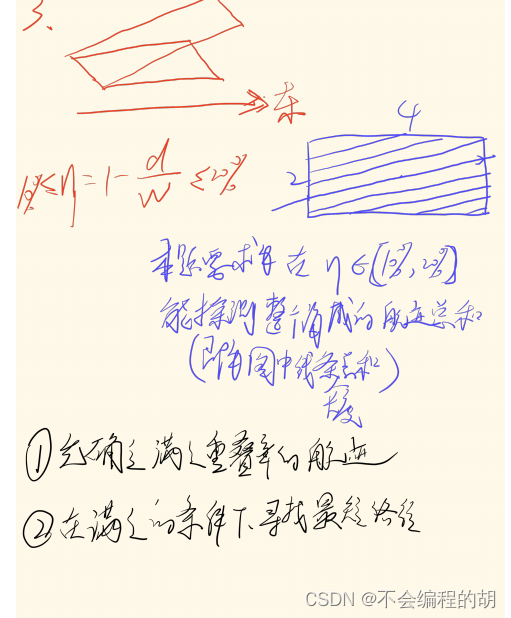 3、
东
10%≤η=1-d/W≤20%
4
2
本题要求解在 η∈[10%,20%]
能探测整个海域的航迹总和
(即为图中线条总和)
长度
①先确定满足重叠率的航迹
②在满足的条件下寻找最短路径
CSDN @不会编程的胡